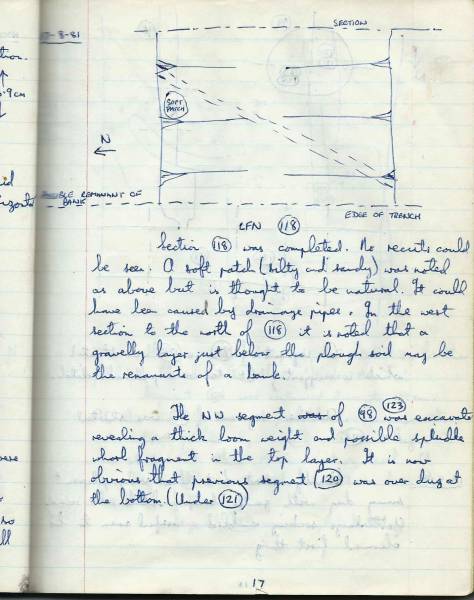 SECTION
-8-81
tion.
9cm
SOFT
PATCH
N
REMNANT OF
BANK
EDGE OF TRENCH
CFN 118
Section 118 was completed. No recuts could
be seen. A soft patch (silty and sandy) was noted
as above but is thought to be natural. It could
have been caused by drainage pipes. In the west
section to the north of 118 it is noted that a
gravelly layer just below the plough soil may be
the remanants of a bank.
The NW segment was of 98 123 was excavate
revealing a thick loom weight and possible spindle
whorl fragment in the top layer. It is now
obvious that previous segmet 120 was over dug at
the bottom. (Under 121)
17